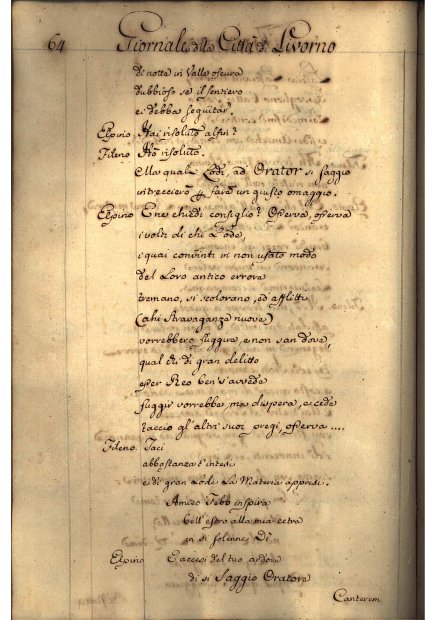 64 Giornali della Città di Livorno
di notte in Valle oscura
dubbioso se il sentiero
ei debba seguitar.
Elpino Hai risoluto alfin?
Fileno. Ho risoluto.
Ma qual Lodi, ad Orator si saggio
intreccierò farò un giusto omaggio.
Elpino E ne chiedi consiglio? Osserva, osserva
i volti di chi l'ode,
i quai convinti in non usato modo
del Loro antico errore
tremano, si scolorano, ed afflitti
(ahi stravaganza nuova)
vorrebbero fuggire, e non san dove,
qual chi di gran delitto
esser Reo ben s'avvede
fuggir vorrebbe, ma dispera, e cede
taccio gl'altri suoi pregi, osserva ....
Fileno. Taci
abbastanza t'intesi
e di gran Lode La Materia appresi.
Amico Febo inspira
bell'estro alla mia cetra
in si solenne Dì
Elpino E accesi del tuo ardore
di si Saggio Oratore
Canterem